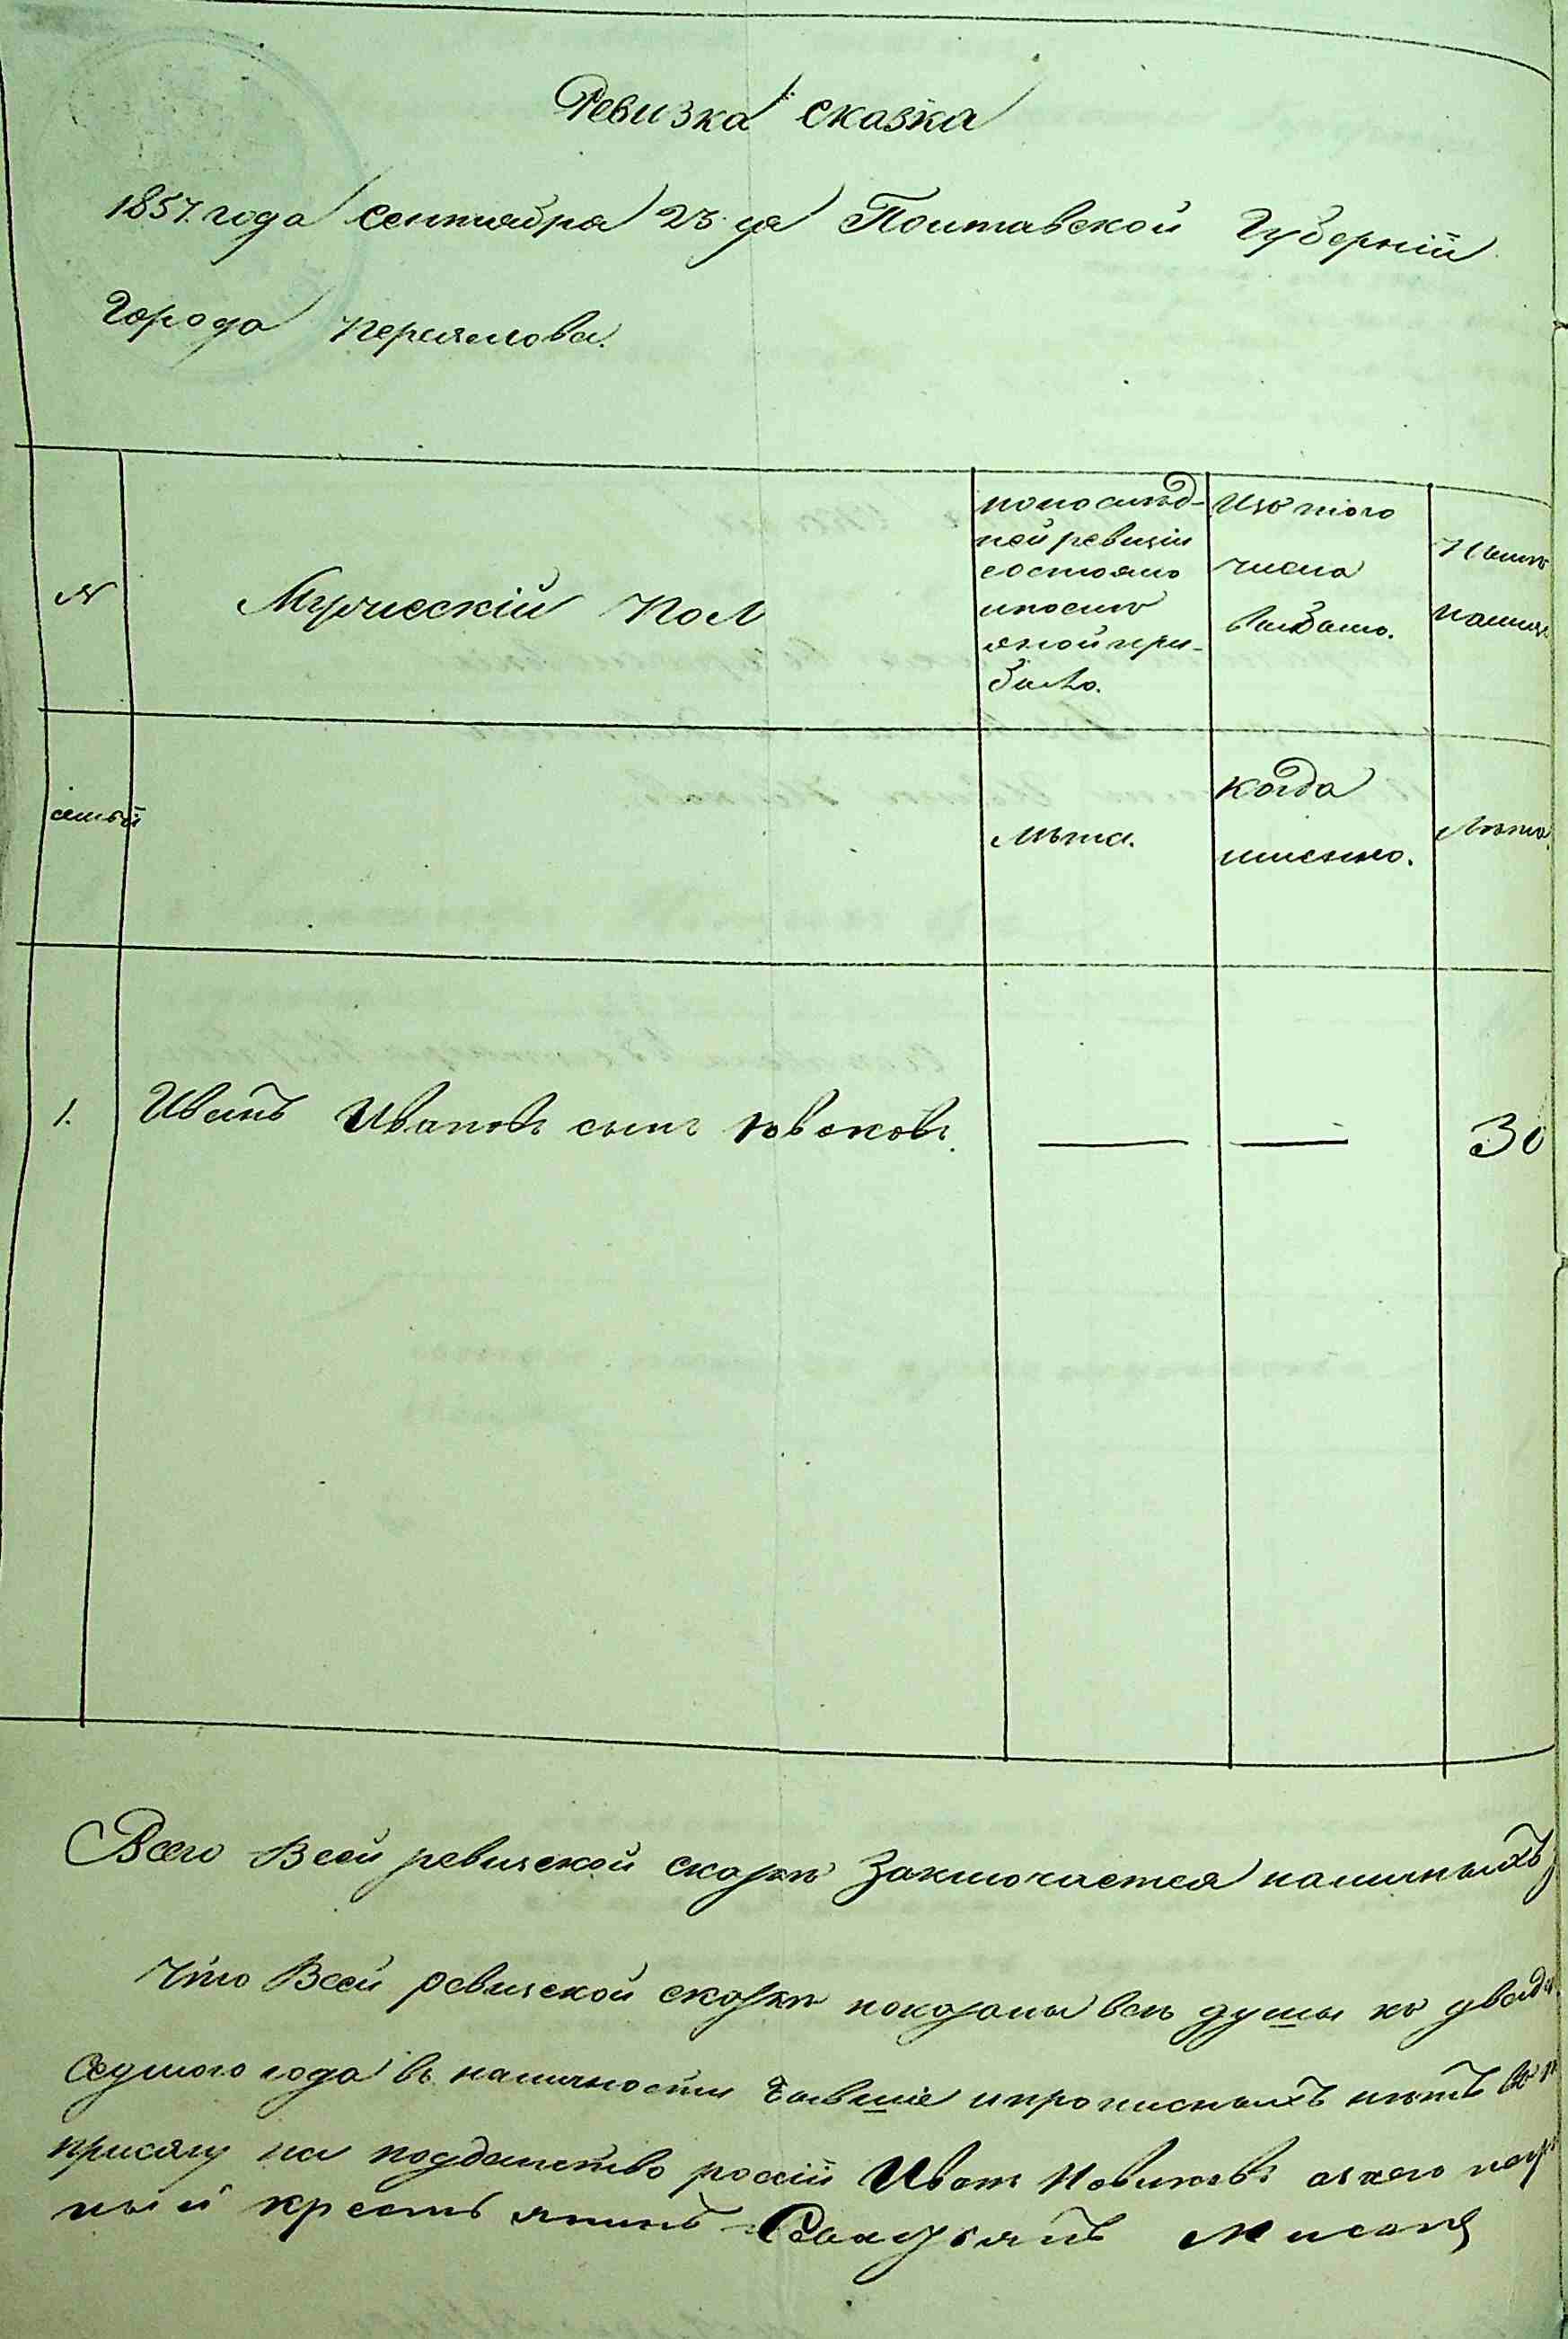 Ревизка сказка
1857. года Сентября 23 дня Полтавской Губерніи
Города Переяслова.
№
Мужескій пол
по послѣд-
ней ревизіи
состояло
и послѣ
оной при-
было.
Изъ того
числа
выбыло.
Нынѣ
налице
семьи
лѣта.
когда
именно.
лѣта.
1.
Иванъ Ивановъ сынъ Новаковъ.
30
Всего Всей ревизской скаzкѣ Заключается наличныхъ
Что Всей ревизской сказкѣ показаны всѣ души по
седмого года въ наличности бывшіе и прописныхъ нѣтъ
присягу на подданство россіи Иванъ Новиковъ а
ный крестьянинъ